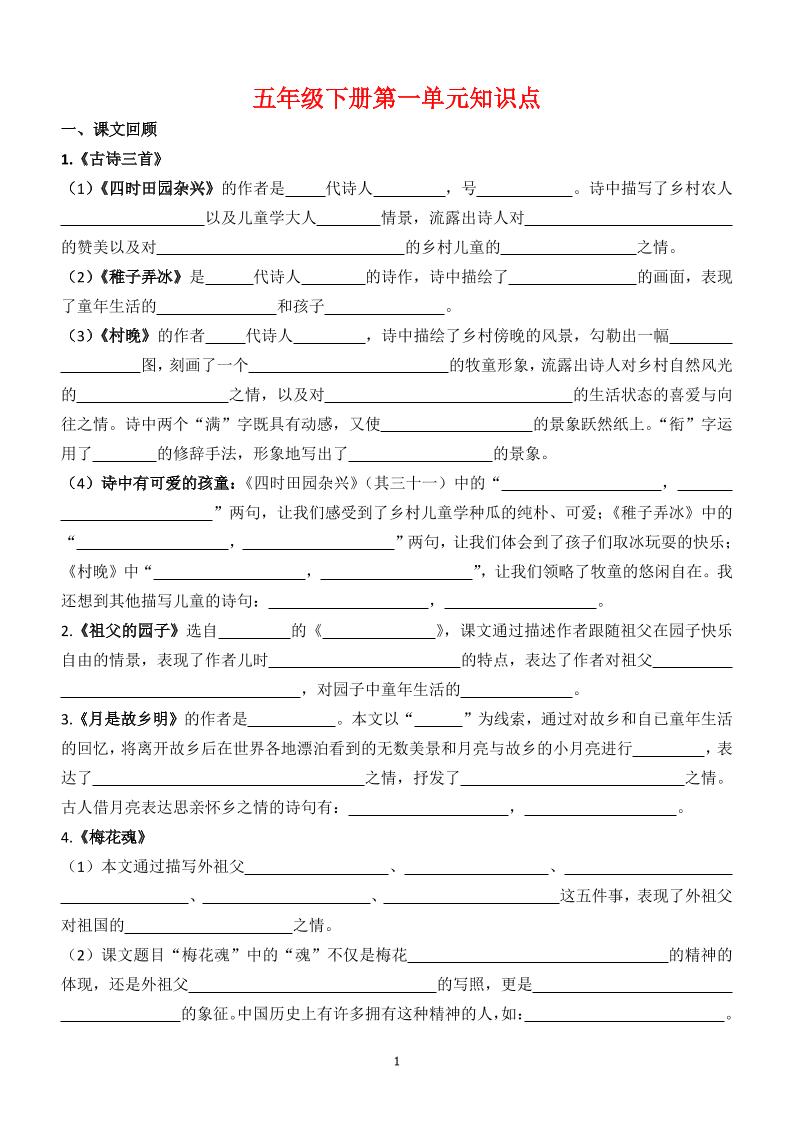 五年级下册第一单元知识点
一、课文回顾
1.《古诗三首》
（1）《四时田园杂兴》的作者是_____代诗人_________，号____________。诗中描写了乡村农人
__________________以及儿童学大人________情景，流露出诗人对__________________________
的赞美以及对_______________________________的乡村儿童的_________________之情。
（2）《稚子弄冰》是______代诗人________的诗作，诗中描绘了________________的画面，表现
了童年生活的_______________和孩子_______________。
（3）《村晚》的作者_____代诗人_________，诗中描绘了乡村傍晚的风景，勾勒出一幅________
__________图，刻画了一个_________________________的牧童形象，流露出诗人对乡村自然风光
的___________________之情，以及对_______________________________的生活状态的喜爱与向
往之情。诗中两个“满”字既具有动感，又使___________________的景象跃然纸上。“衔”字运
用了________的修辞手法，形象地写出了__________________的景象。
（4）诗中有可爱的孩童：《四时田园杂兴》（其三十一）中的“____________________，_______
___________________”两句，让我们感受到了乡村儿童学种瓜的纯朴、可爱；《稚子弄冰》中的
“___________________，___________________”两句，让我们体会到了孩子们取冰玩耍的快乐；
《村晚》中“___________________，___________________”，让我们领略了牧童的悠闲自在。我
还想到其他描写儿童的诗句：____________________，___________________。
2.《祖父的园子》选自_________的《______________》，课文通过描述作者跟随祖父在园子快乐
自由的情景，表现了作者儿时________________________的特点，表达了作者对祖父__________
______________________________，对园子中童年生活的______________。
3.《月是故乡明》的作者是___________。本文以“______”为线索，通过对故乡和自已童年生活
的回忆，将离开故乡后在世界各地漂泊看到的无数美景和月亮与故乡的小月亮进行_________，表
达了__________________________________之情，抒发了____________________________之情。
古人借月亮表达思亲怀乡之情的诗句有：____________________，___________________。
4.《梅花魂》
（1）本文通过描写外祖父__________________、__________________、_____________________
________________、_____________________、______________________这五件事，表现了外祖父
对祖国的_____________________之情。
（2）课文题目“梅花魂”中的“魂”不仅是梅花_________________________________的精神的
体现，还是外祖父_______________________________的写照，更是_________________________
_______________的象征。中国历史上有许多拥有这种精神的人，如：_________________________。
1